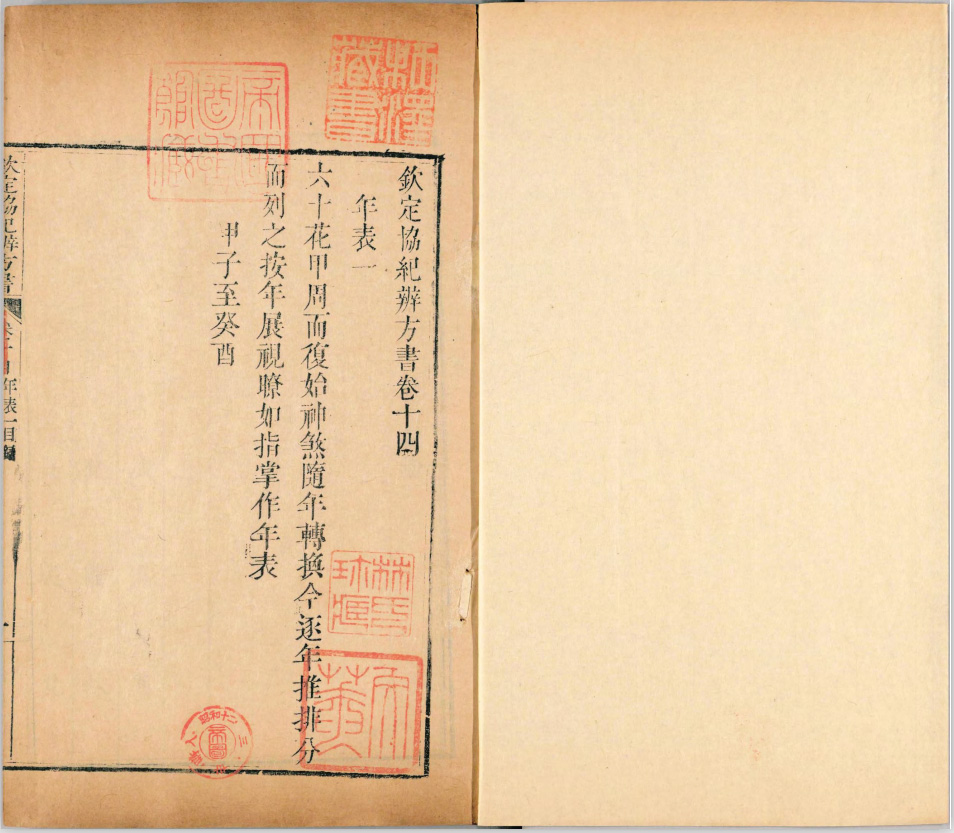 欽定協紀辨方書卷十四
年表一
六十花甲周而復始神煞隨年轉換今逐年推排分
而列之按年展視瞭如指掌作年表
甲子至癸酉
欽定協紀辨方書
年表一目
藏書
昭和十二